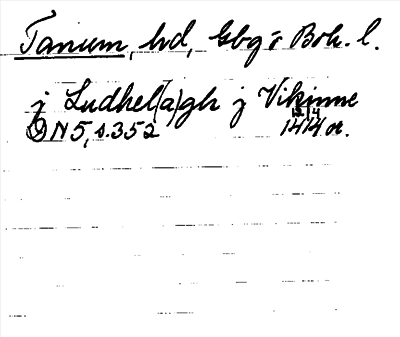 Tanum, hd, Gbg o Boh. l.
j Ludhel(a)gh j Vikinne
DN 5, s. 352 12/4 1414 or.